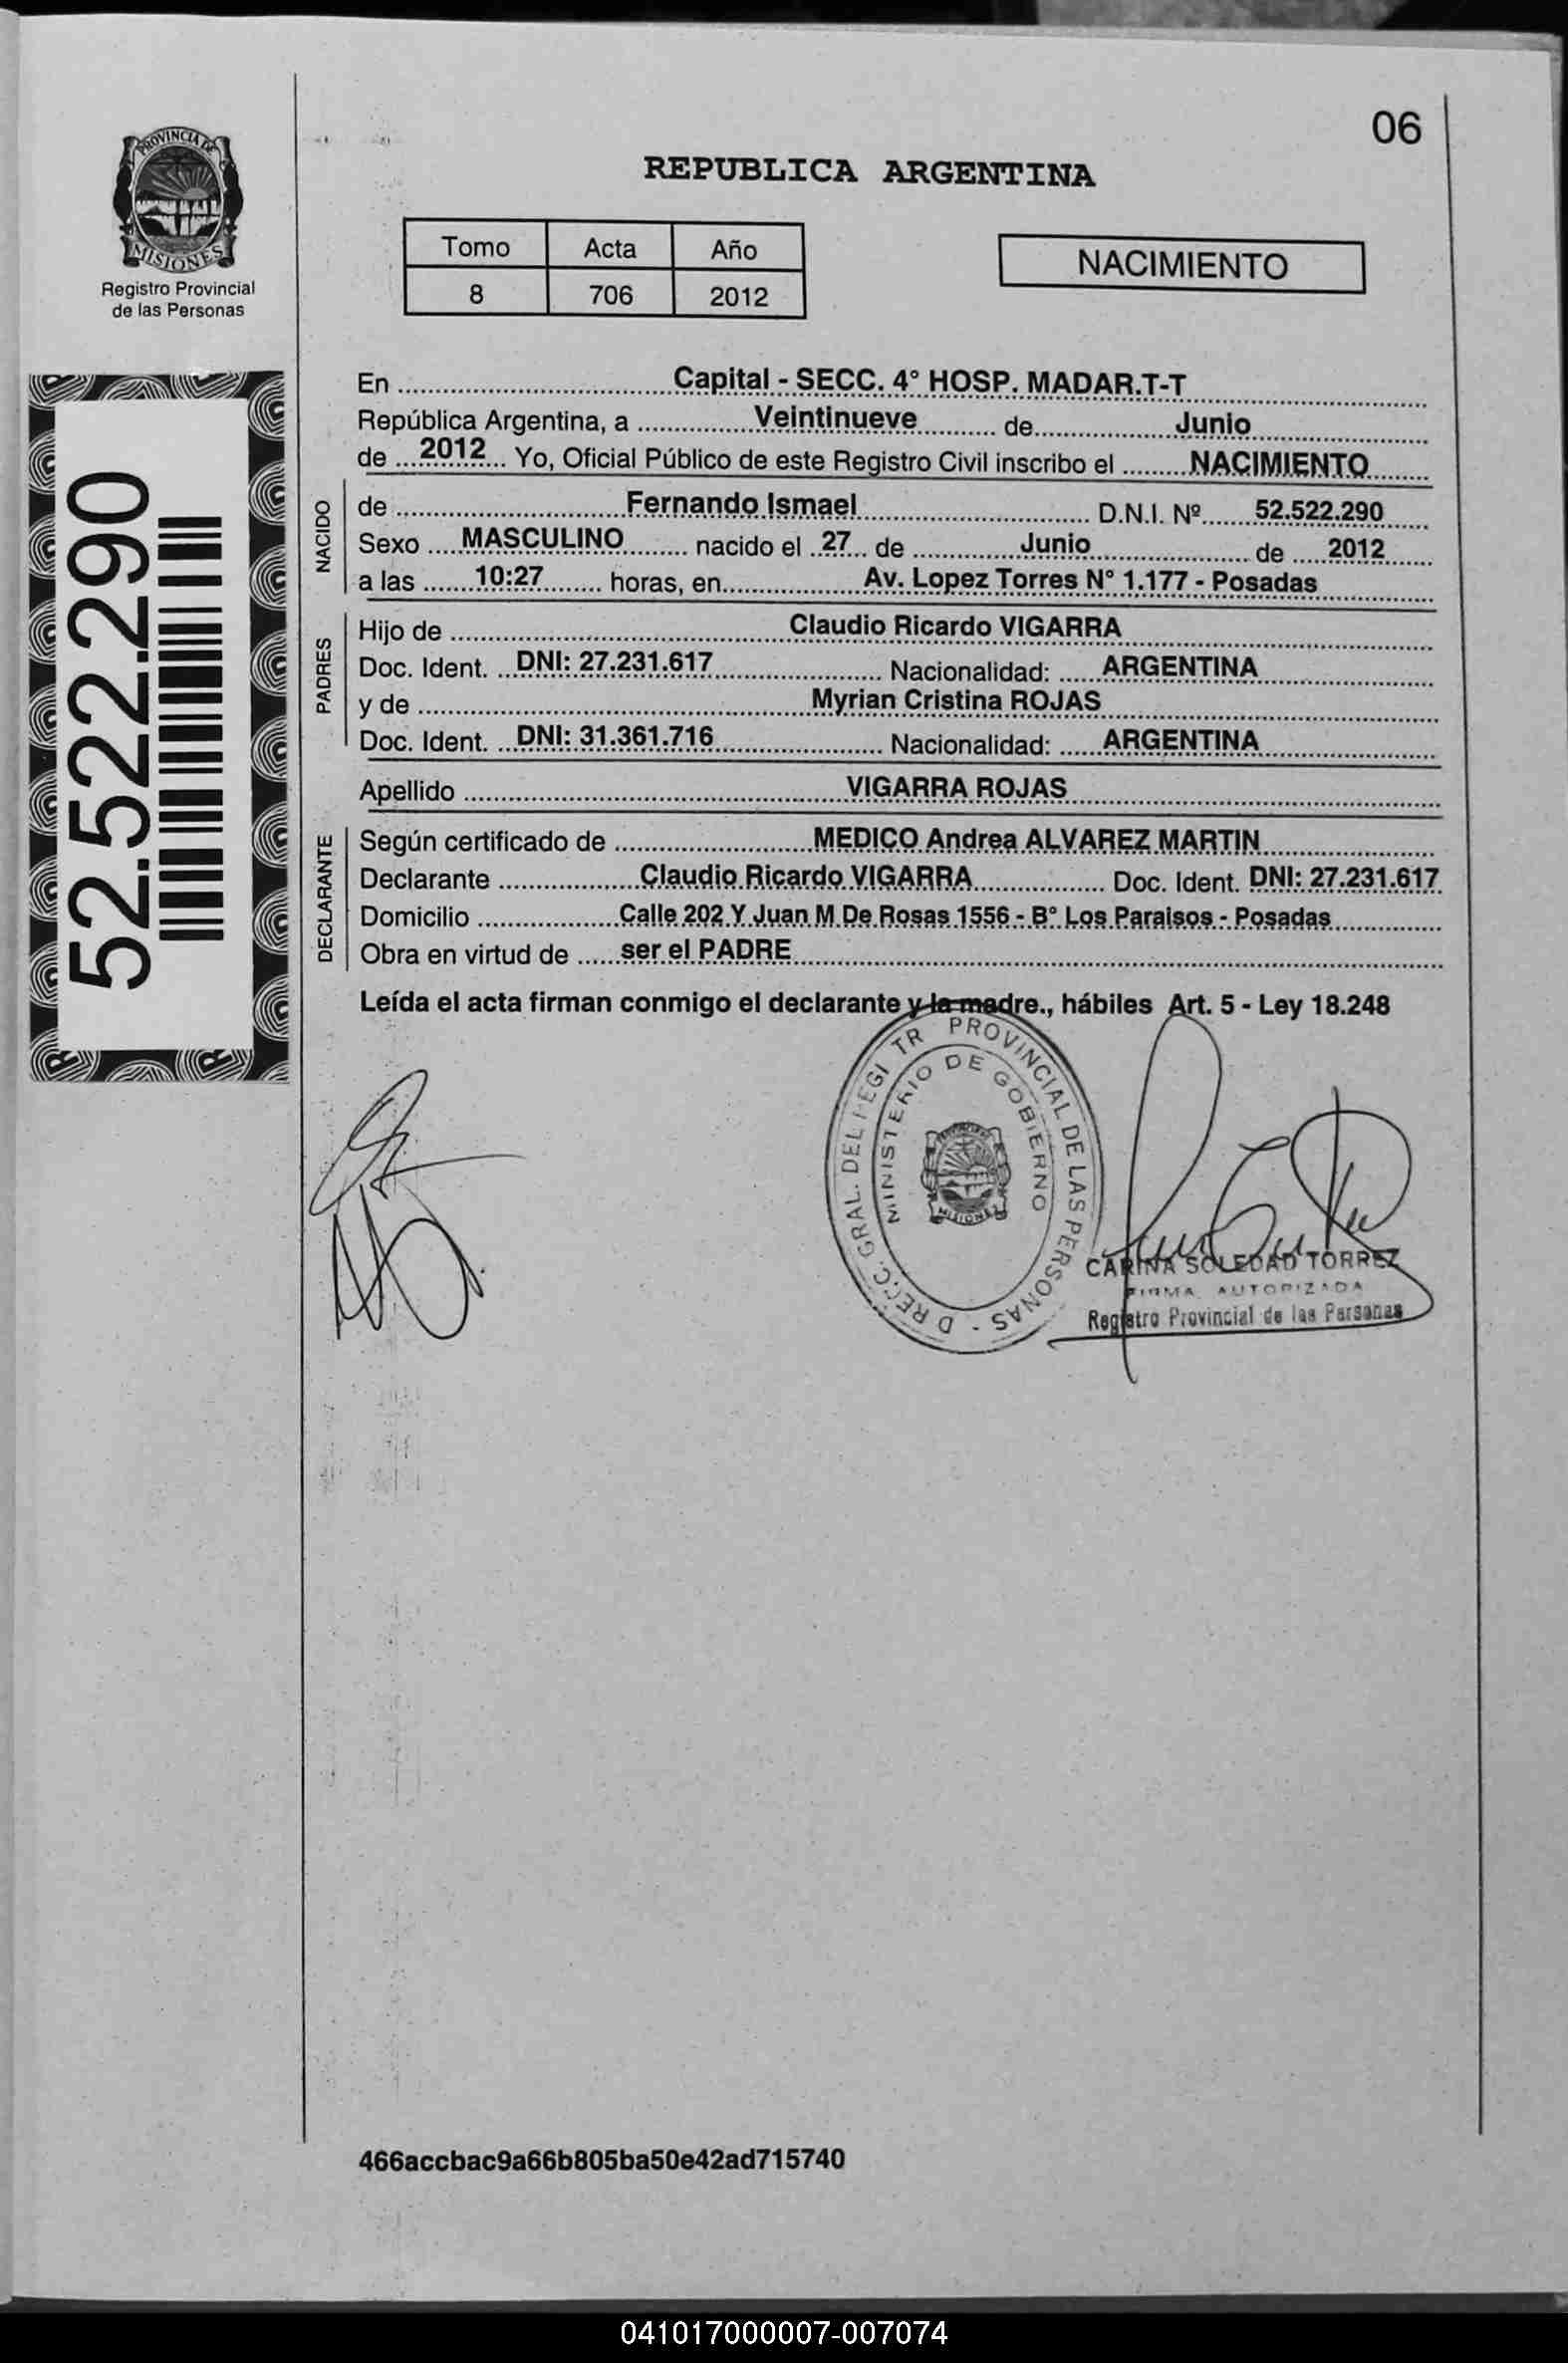 06
PROVINCIA DE
MISIONES
Registro Provincial
de las Personas
REPUBLICA ARGENTINA
Tomo Acta Año
8 706 2012
NACIMIENTO
52.522.290
En Capital - SECC. 4° HOSP. MADAR.T-T
República Argentina, a Veintinueve de Junio
de 2012 Yo, Oficial Público de este Registro Civil inscribo el NACIMIENTO
NACIDO
de Fernando Ismael D.N.I. Nº 52.522.290
Sexo MASCULINO nacido el 27 de Junio de 2012
a las 10:27 horas, en Av. Lopez Torres N° 1.177 - Posadas
PADRES
Hijo de Claudio Ricardo VIGARRA
Doc. Ident. DNI: 27.231.617 Nacionalidad: ARGENTINA
y de Myrian Cristina ROJAS
Doc. Ident. DNI: 31.361.716 Nacionalidad: ARGENTINA
Apellido VIGARRA ROJAS
DECLARANTE
Según certificado de MEDICO Andrea ALVAREZ MARTIN
Declarante Claudio Ricardo VIGARRA Doc. Ident. DNI: 27.231.617
Domicilio Calle 202 Y Juan M De Rosas 1556 - B° Los Paraisos - Posadas
Obra en virtud de ser el PADRE
Leída el acta firman conmigo el declarante y la madre., hábiles Art. 5 - Ley 18.248
PROVINCIAL DE LAS PERSONAS
GRAL. DEL
MINISTERIO DE GOBIERNO
MISIONES
CARINA SOLEDAD TORREZ
FIRMA AUTORIZADA
Registro Provincial de las Personas
466accbac9a66b805ba50e42ad715740
041017000007-007074